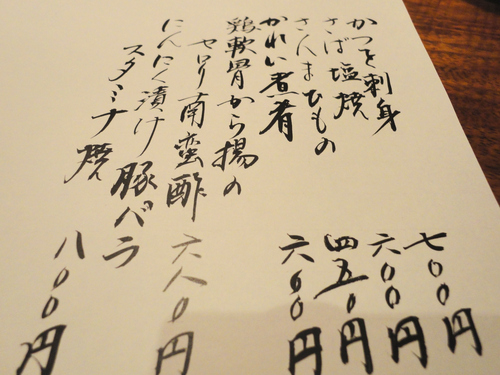 かつを刺身
さば塩焼
さんまひもの
かれい煮肴
鶏軟骨から揚の
セロリ南蛮酢
にんにく漬け豚バラ
スタミナ焼
七〇〇円
六〇〇円
四五〇円
六〇〇円
六八〇円
八〇〇円